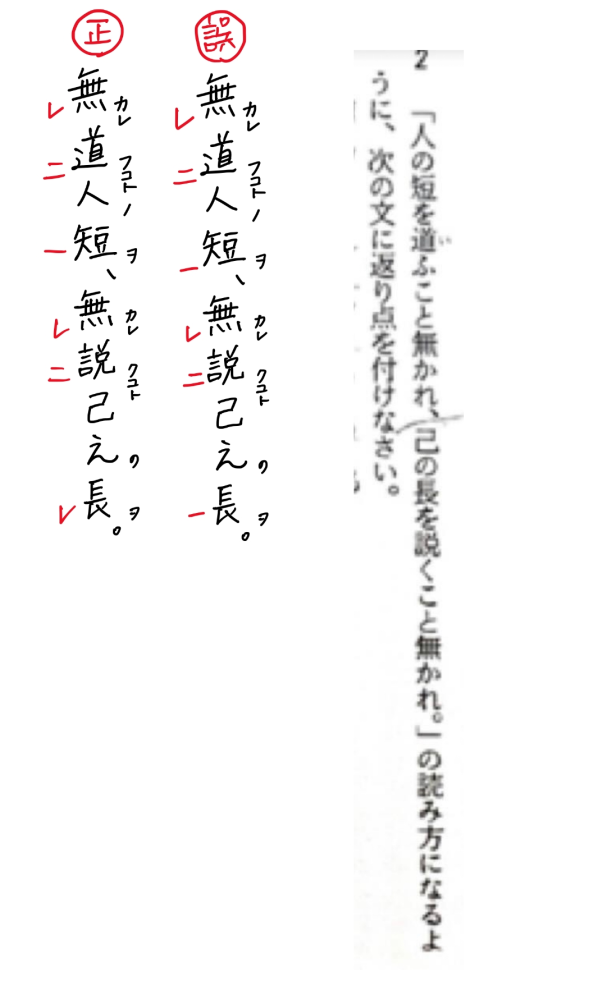 2
「人の短を道ふこと無かれ、己の長を説くこと無かれ。」の読み方になるよ
い
うに、次の文に返り点を付けなさい。
誤
無カレレ道フコト二人ノ短ヲ一、無カレレ説クコト二己之ノ長ヲ一。
正
無カレレ道フコト二人ノ短ヲ一、無カレレ説クコト二己之ノ長ヲレ。